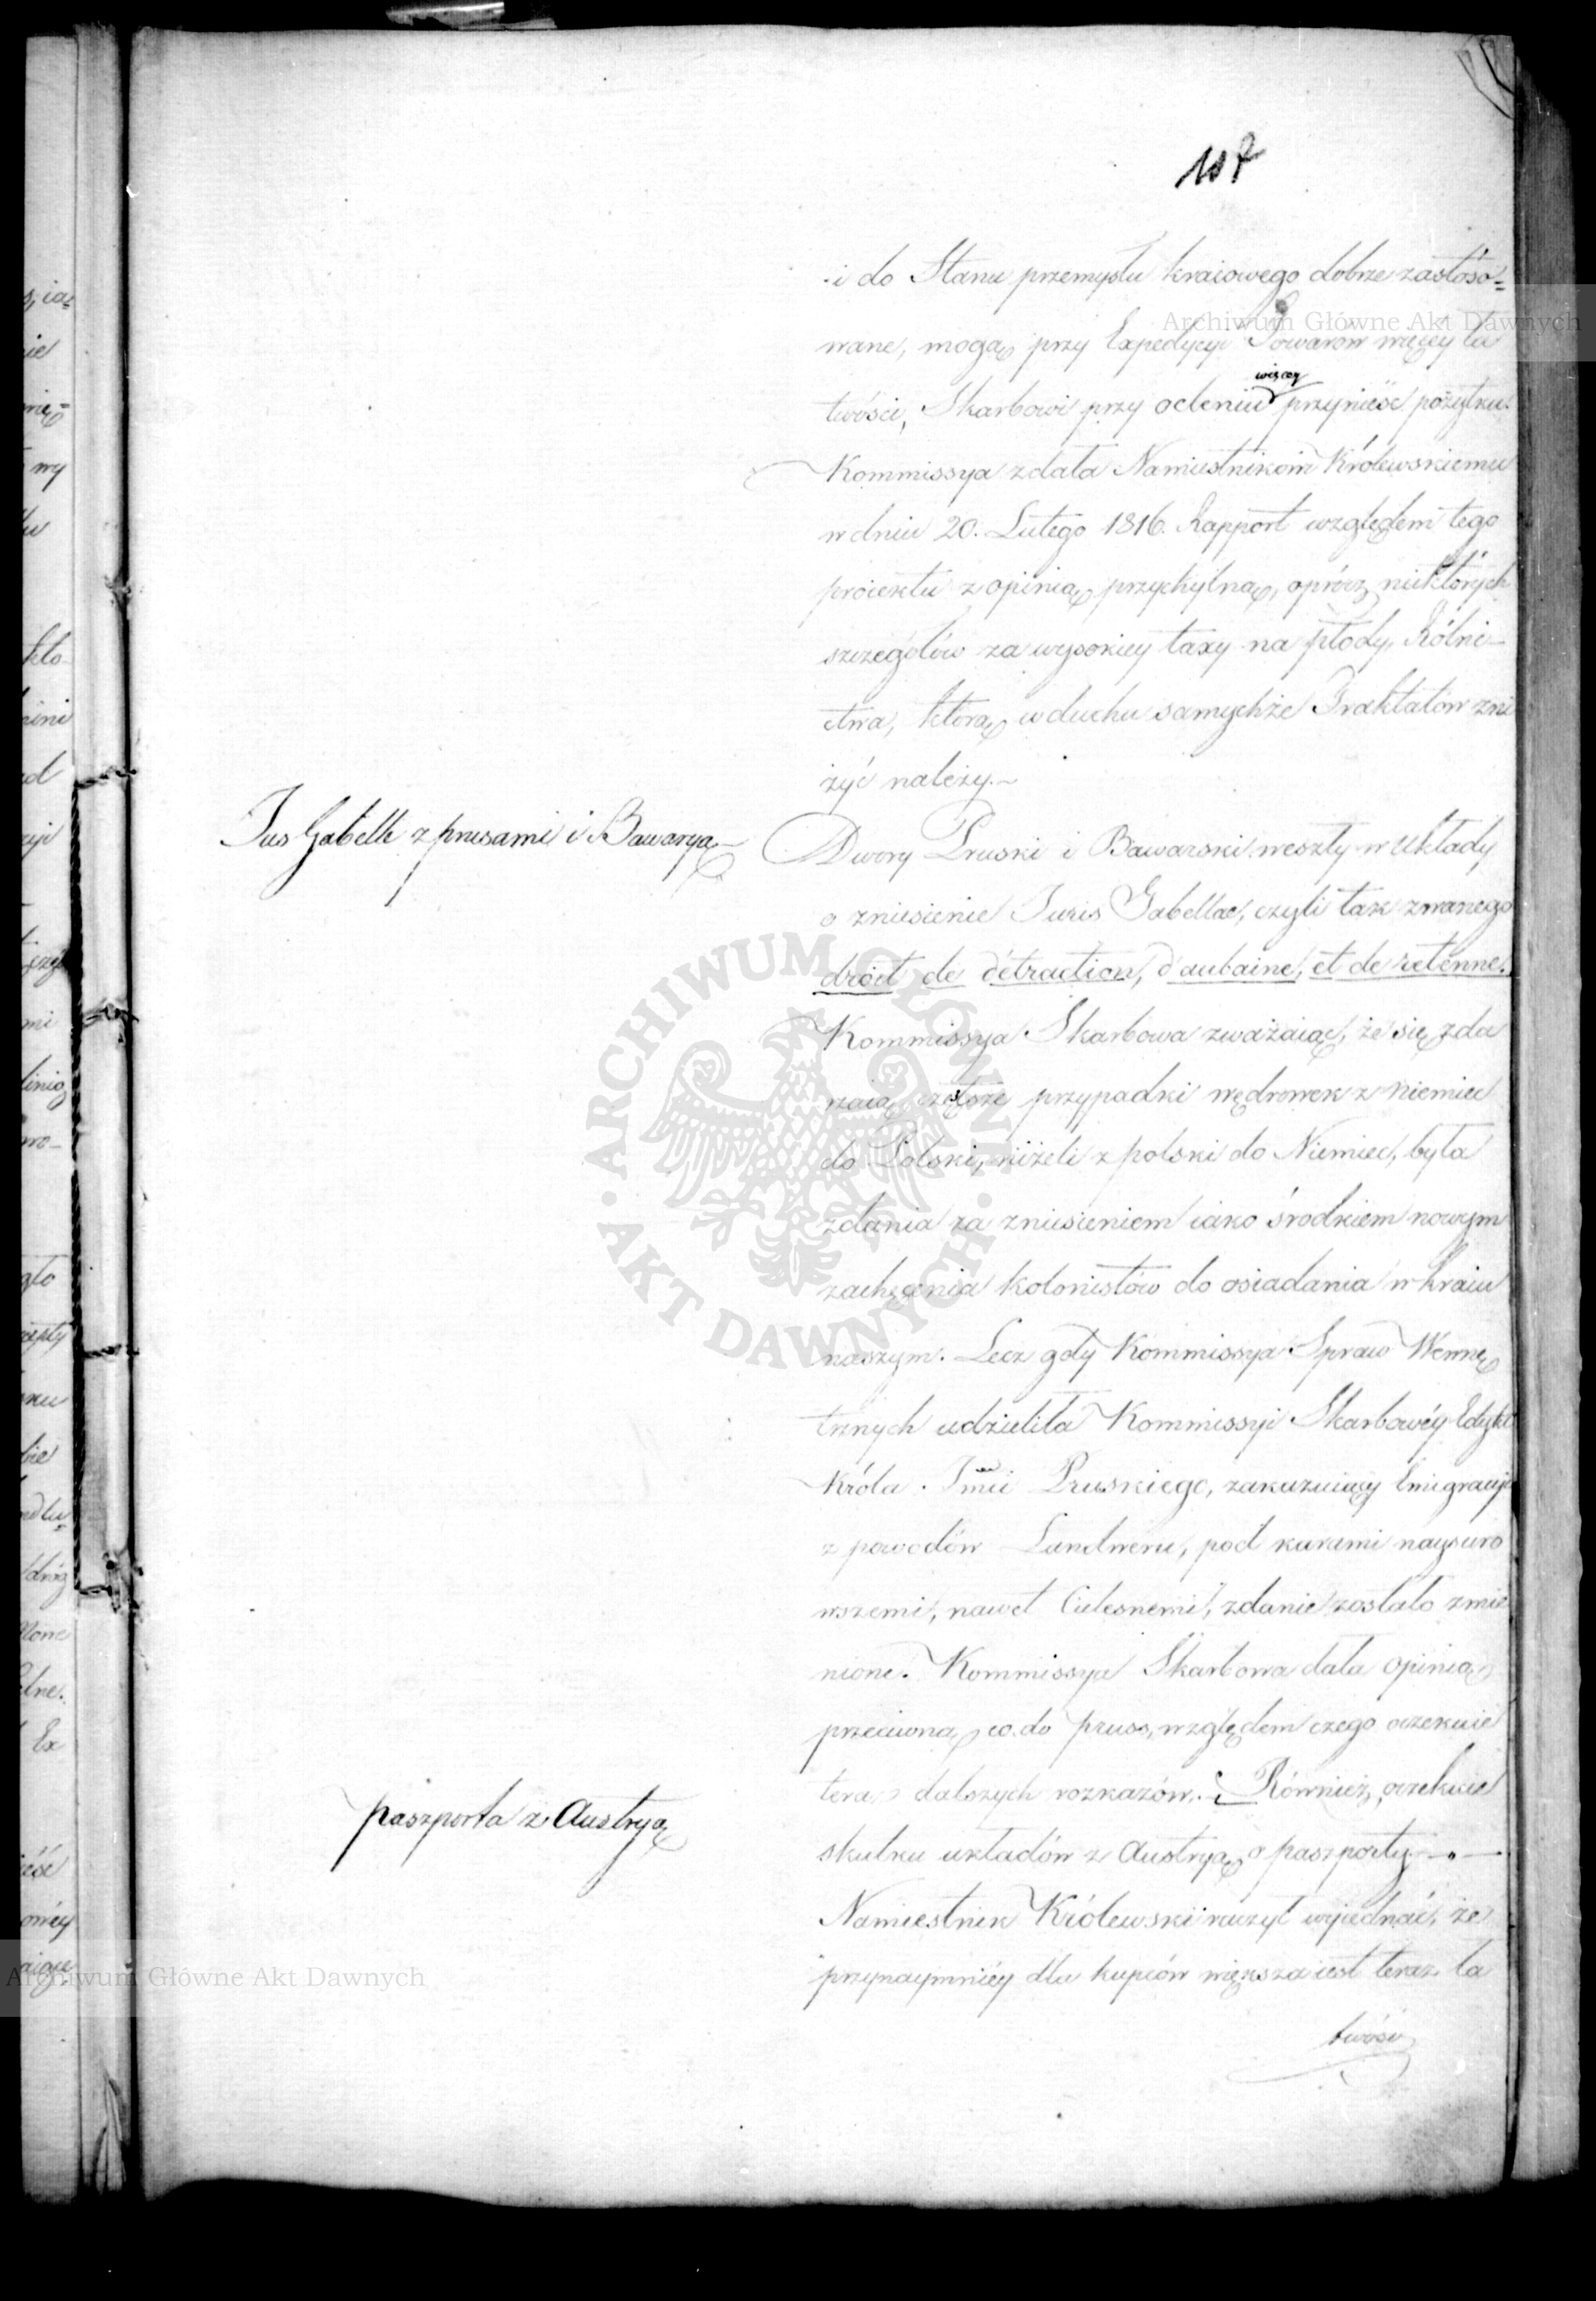 107
i do Stanu przemysłu kraiowego dobrze zastoso=
wane, mogą przy Expedycyi Towarow więcey ła
twości, Skarbowi przy ocleniu więcey przynieść pożytku.
Kommissya zdała Namiestnikowi Królewskiemu
w dniu 20. Lutego 1816. Rapport względem tego
proiektu z opinią przychylną, oprócz niektórych
szczegółów za wysokiey taxy na płody Rolni-
ctwa, którą w duchu samychże Traktatów zni
żyć należy.-
Jus Gabelle z prusami i Bawaryą-
Dwory Pruski i Bawarski weszły w układy
o zniesienie Juris Gabellae, czyli tak zwanego
droit de détraction, d'aubaine, et de retenue.
Kommissya Skarbowa zważaiąc, że się zda
rzaią częstsze przypadki wędrowek z Niemiec
do Polski, niżeli z polski do Niemiec, była
zdania za zniesieniem iako środkiem nowym
zachęcenia kolonistów do osiadania w kraiu
naszym. Lecz gdy Kommissya Spraw Wewnę
trznych udzieliła Kommissyi Skarbowéy Edykt
Króla Jmci Pruskiego, zakazuiący Emigracyi
z powodów Landweru, pod karami naysuro
wszemi, nawet Cielesnemi, zdanie zostało zmie
nione. Kommissya Skarbowa dała opinią
przeciwną co do pruss, względem czego oczekuie
teraz dalszych rozkazów. Również oczekuie
paszporta z Austryą
skutku układów z Austryą o paszporty.-
Namiestnik Królewski raczył wyiednać, że
przynaymniéy dla kupców większa iest teraz ła
twość
Archiwum Główne Akt Dawnych
Archiwum Główne Akt Dawnych
ARCHIWUM GŁÓWNE AKT DAWNYCH